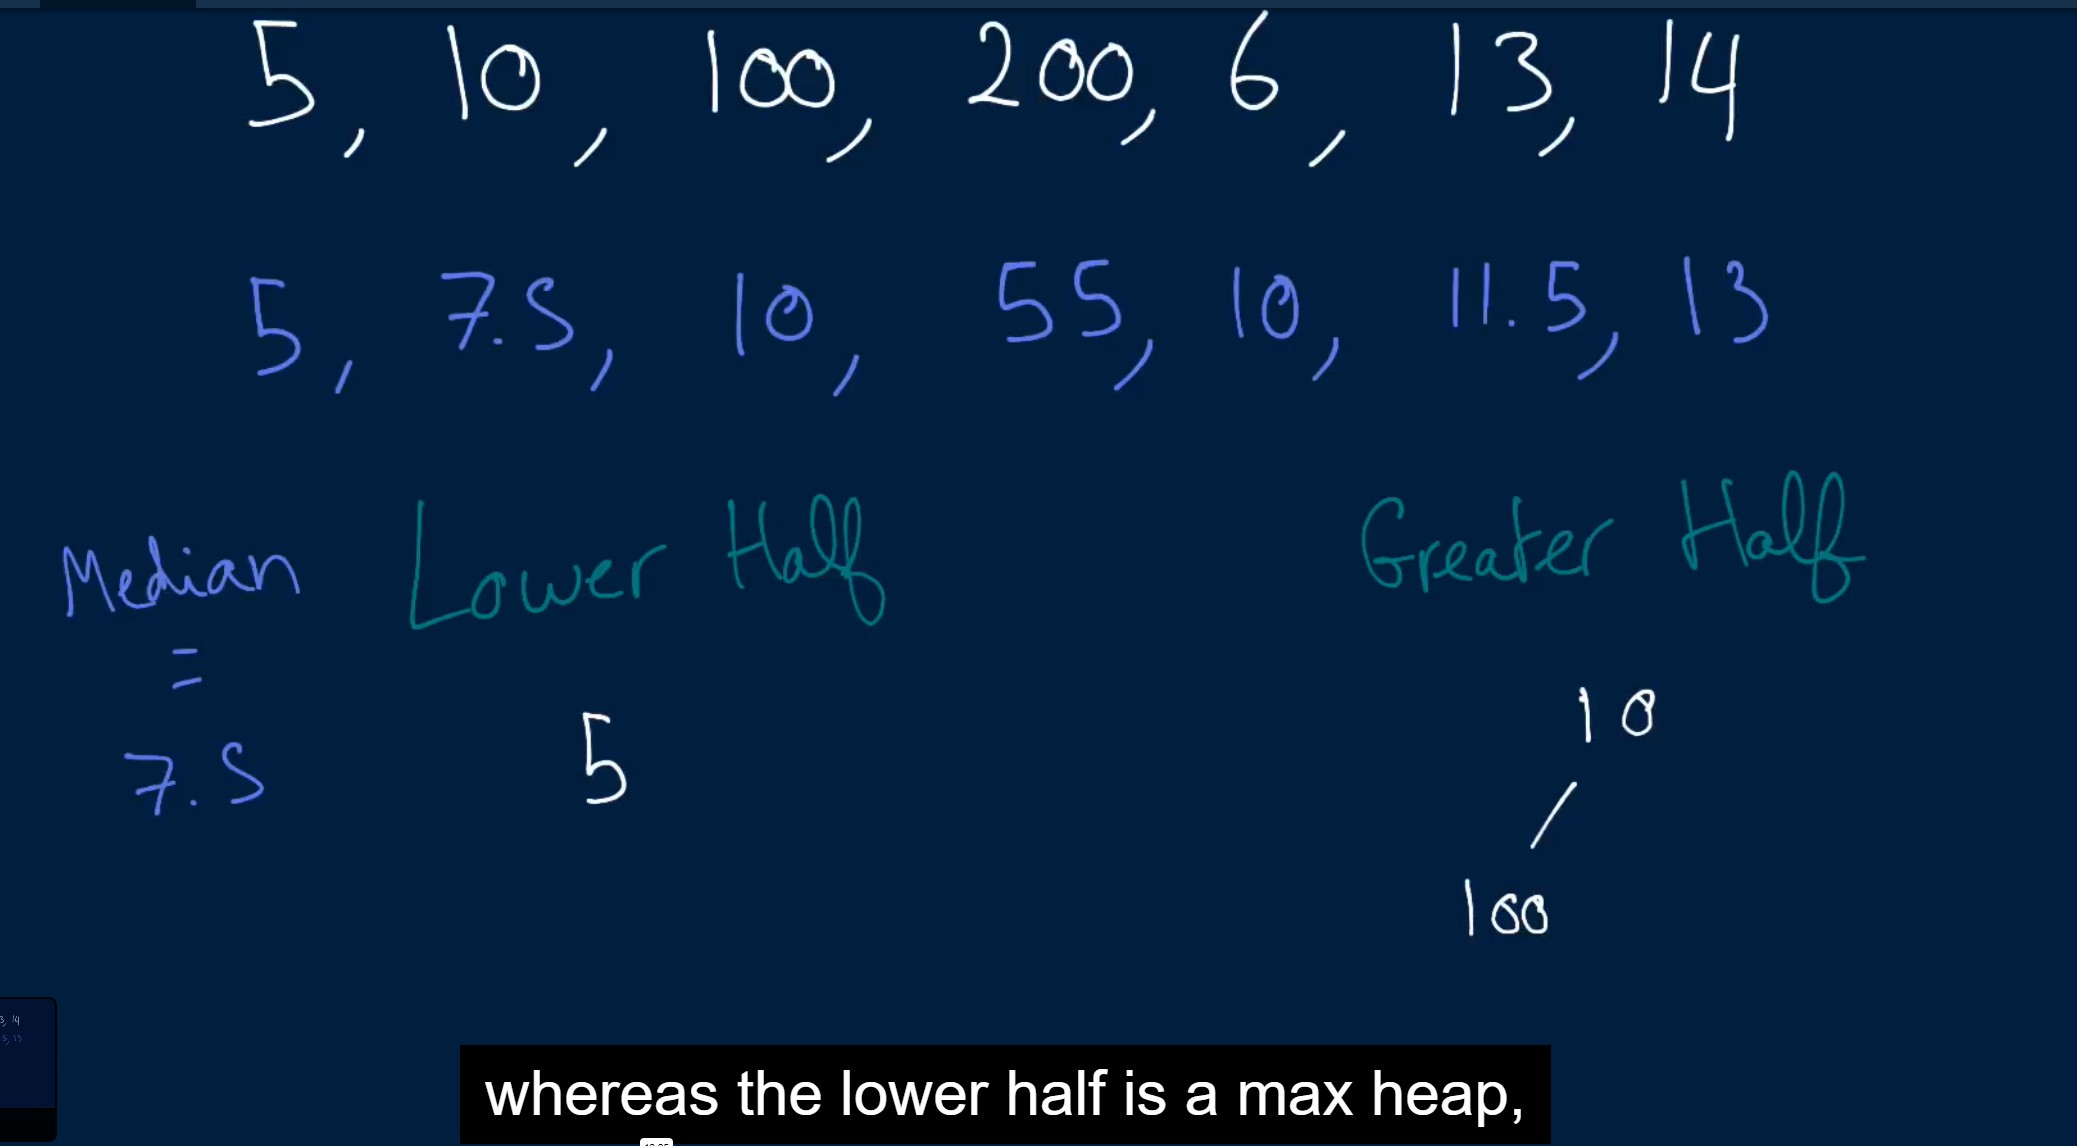 5, 10, 100, 200, 6, 13, 14
5, 7.5, 10, 55, 10, 11.5, 13
Median
=
7.5
Lower Half
5
Greater Half
10
100
3, 14
5, 13
whereas the lower half is a max heap,